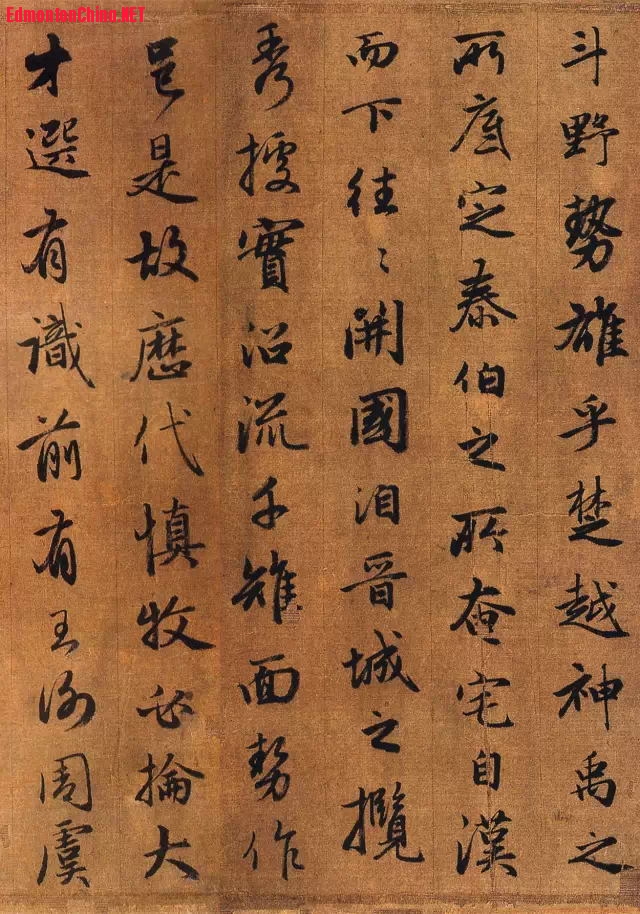 EdmontonChina.NET
斗野勢雄乎楚越神禹之
所底定泰伯之所奄宅自漢
而下往〻開國洎晉城之攬
秀擅實沿流千雉面勢作
邑是故歷代慎牧必掄大
才選有識前有王何周虞